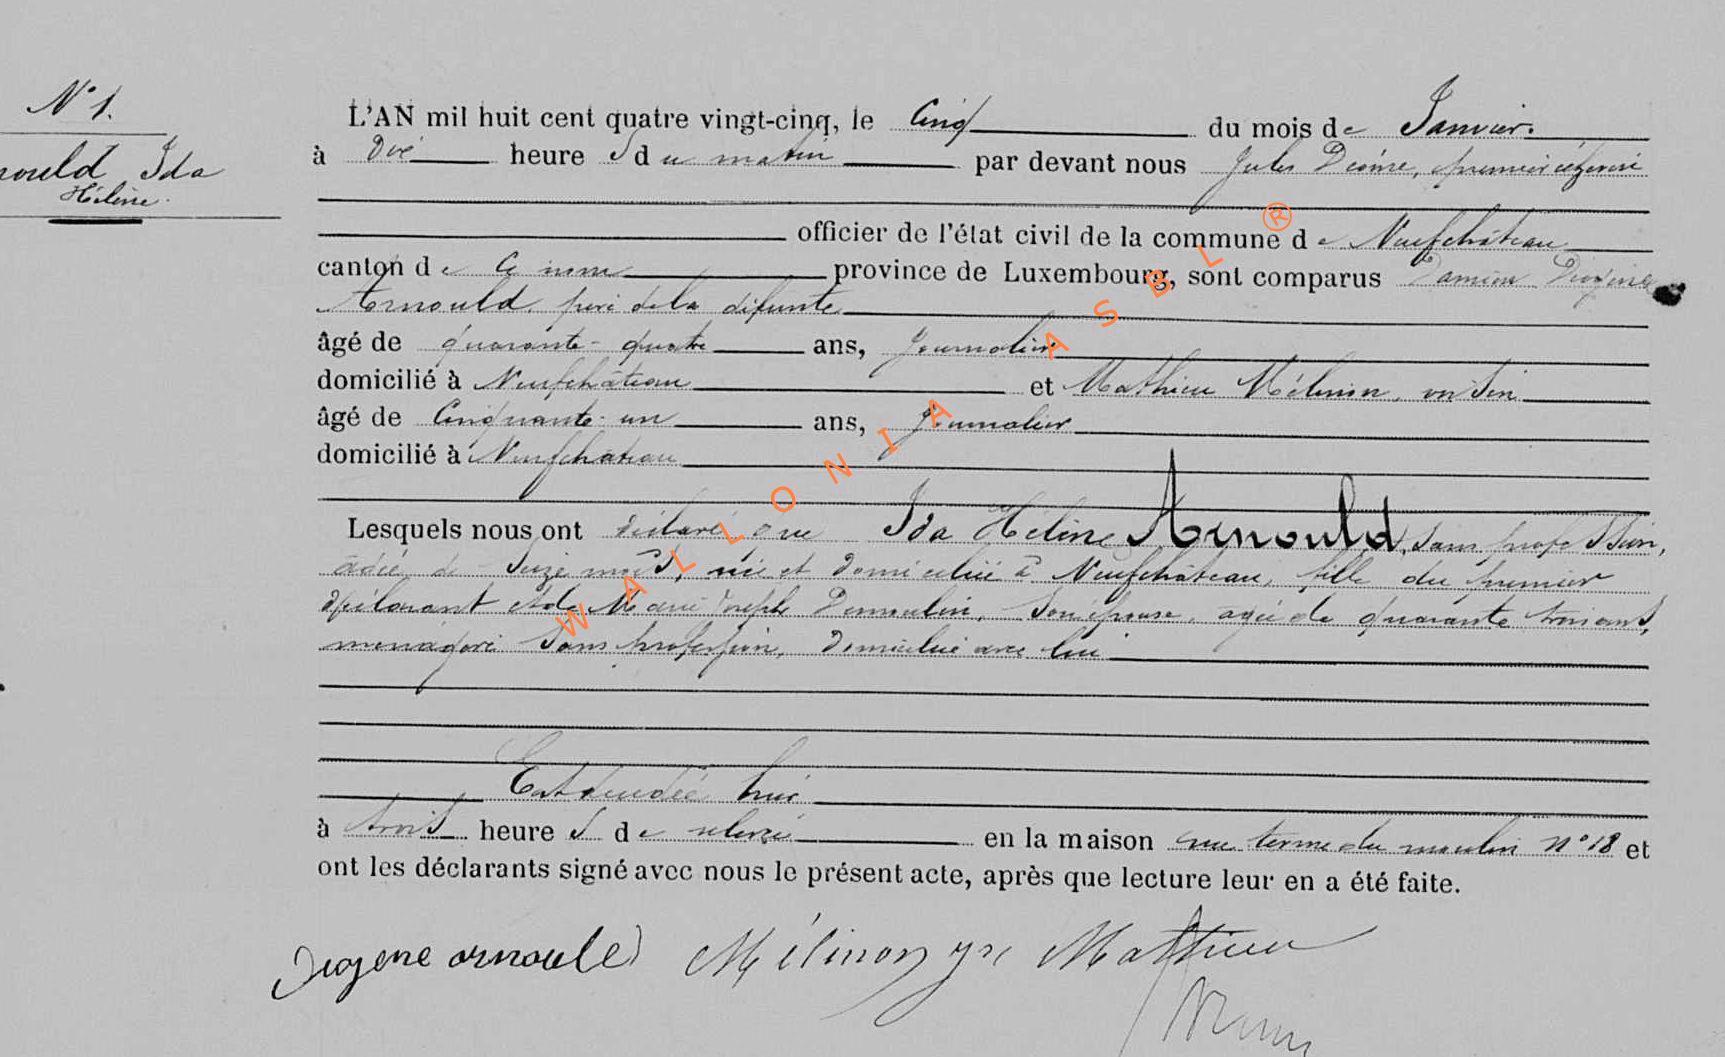 N° 1.
nould Ida
Hélène.
L'AN mil huit cent quatre vingt-cinq, le Cinq du mois de Janvier.
à heures du matin par devant nous Jules premier échevin
officier de l'état civil de la commune de Neufchâteau
canton de Ce nom province de Luxembourg, sont comparus Damien
Arnould, père de la défunte
âgé de quarante-quatre ans, Journalier
domicilié à Neufchâteau et Mathieu Mélinon, voisin
âgé de Cinquante-un ans, Journalier
domicilié à Neufchateau
Lesquels nous ont déclaré que Ida Hélène Arnould, sans profession,
âgée de mois, née et domiciliée à Neufchâteau, fille du premier
déclarant et de Marie Joseph Demoulin, son épouse, agée de quarante trois ans,
menagère sans profession, domiciliée avec lui
Est décédée hier
à trois heures de relevée en la maison rue terme du moulin n° 18 et
ont les déclarants signé avec nous le présent acte, après que lecture leur en a été faite.
arnould Mélinon Mathieu
WALLONIA ASBL ®